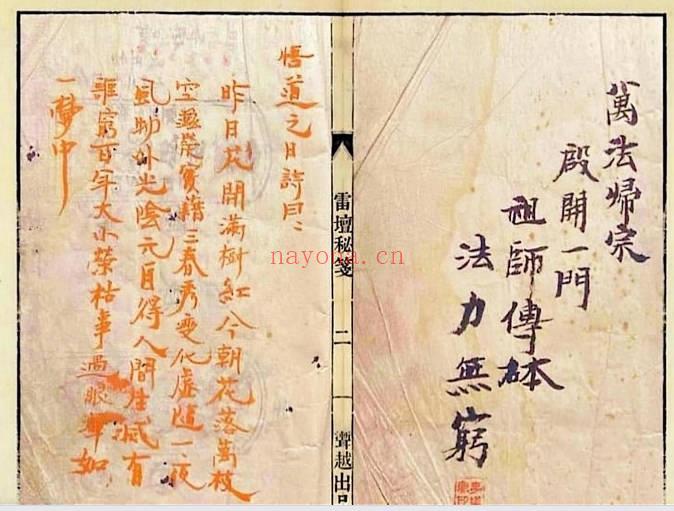 萬法歸宗
啟開一門
祖師傳砵
法力無窮
雷壇秘箋
二
越出品
悟道之日詩曰:
昨日花開滿樹紅今朝花落萬枝
空滋榮實藉三春秀變化虛隨一夜
風助外光陰元自得人間生滅有
誰窮百年大小榮枯事過眼渾如
一夢中
nayona.cn